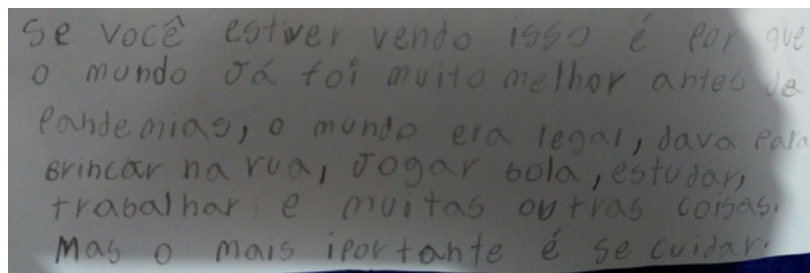 Se você estiver vendo isso é por que
o mundo Já foi muito melhor antes da
Pandemias, o mundo era legal, dava para
Brincar na rua, Jogar bola, estudar,
trabalhar e muitas outras coisas.
Mas o mais iportante é se cuidar.